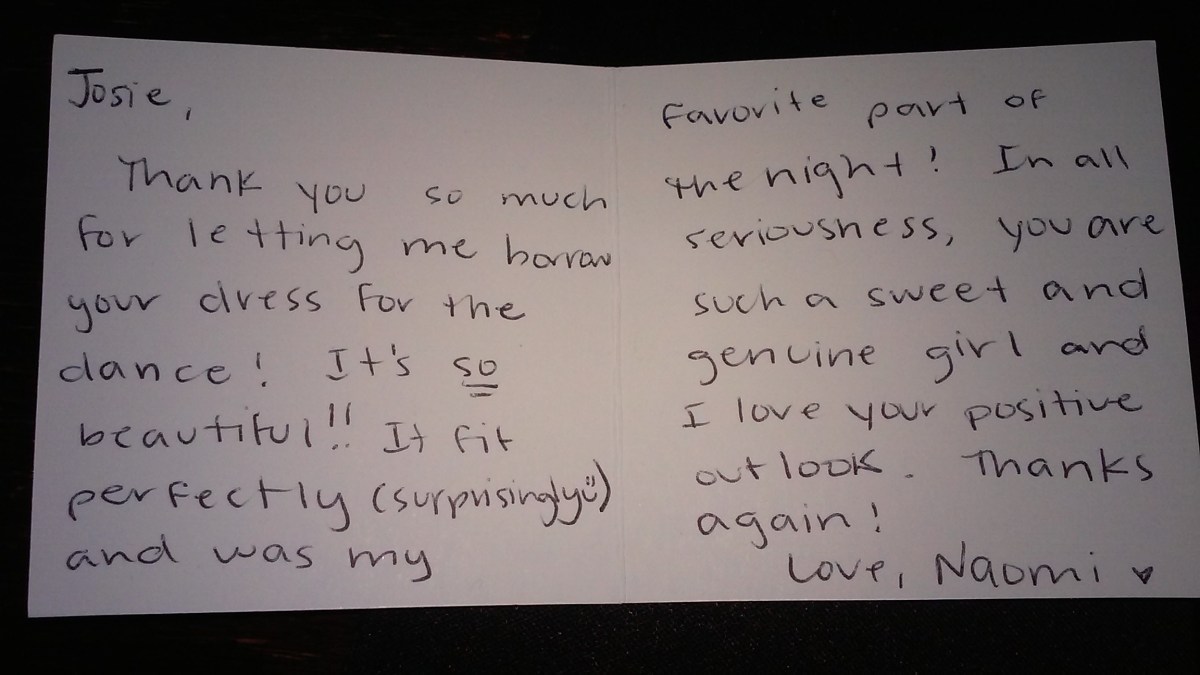 Josie,
Thank you so much
for letting me borrow
your dress for the
dance! It's so
beautiful!! It fit
perfectly (surprisingly ü)
and was my
favorite part of
the night! In all
seriousness, you are
such a sweet and
genuine girl and
I love your positive
outlook. Thanks
again!
Love, Naomi ♥